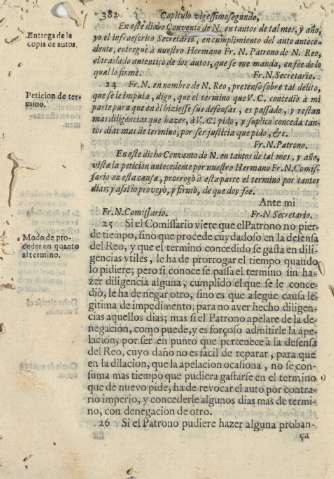 382 Capitulo vigessimosegundo,
En este dicho Convento de N. en tantos de tal mes, y año,
Entrega de la
copia de autos.
yo el infrascrito Secretario, en cumplimiento del auto antece-
dente, entreguè a nuestro Hermano Fr. N. Patrono de N. Reo,
el traslado autentico de los autos, que se me manda, en fee de lo
qual lo firmè. Fr. N. Secretario.
Peticion de ter-
mino.
24 Fr. N. en nombre de N. Reo, pretenso sobre tal delito,
que se le imputa, digo, que el termino que V. C. concediò à mi
parte para que en èl hiziesse sus defensas, es passado, y restan
mas diligencias que hazer, à V. C. pido, y suplico conceda tan-
tos dias mas de termino, por ser justicia que pido, &c.
Fr. N. Patrono.
En este dicho Convento de N. en tantos de tal mes, y año,
vista la peticion antecedente por nuestro Hermano Fr. N. Comis-
sario en esta causa, prorogò a esta parte el termino por tantos
dias; y assi lo proveyò, y firmò, de que doy fee.
Ante mi
Fr. N. Comissario. Fr. N. Secretario.
Modo de pro-
ceder en quanto
al termino.
25 Si el Comissario viere que el Patrono no pier-
de tiempo, sino que procede cuydadoso en la defensa
del Reo, y que el termino concedido se gasta en dili-
gencias vtiles, le ha de prorrogar el tiempo quando
lo pidiere; pero si conoce se passa el termino sin ha-
zer diligencia alguna, cumplido el que se le conce-
diò, le ha de negar otro, sino es que alegue causa le-
gitima de impedimento, para no aver hecho diligen-
cias aquellos dias; mas si el Patrono apelare de la de-
negacion, como puede, y es forçoso admitirle la ape-
lacion, por ser en punto que pertenece à la defensa
del Reo, cuyo daño no es facil de reparar, para que
en la dilacion, que la apelacion ocasiona, no se con-
suma mas tiempo que pudiera gastarse en el termino
que de nuevo pide, ha de revocar el auto por contra-
rio imperio, y concederle algunos dias mas de termi-
no, con denegacion de otro.
26 Si el Patrono pudiere hazer alguna proban-
ça